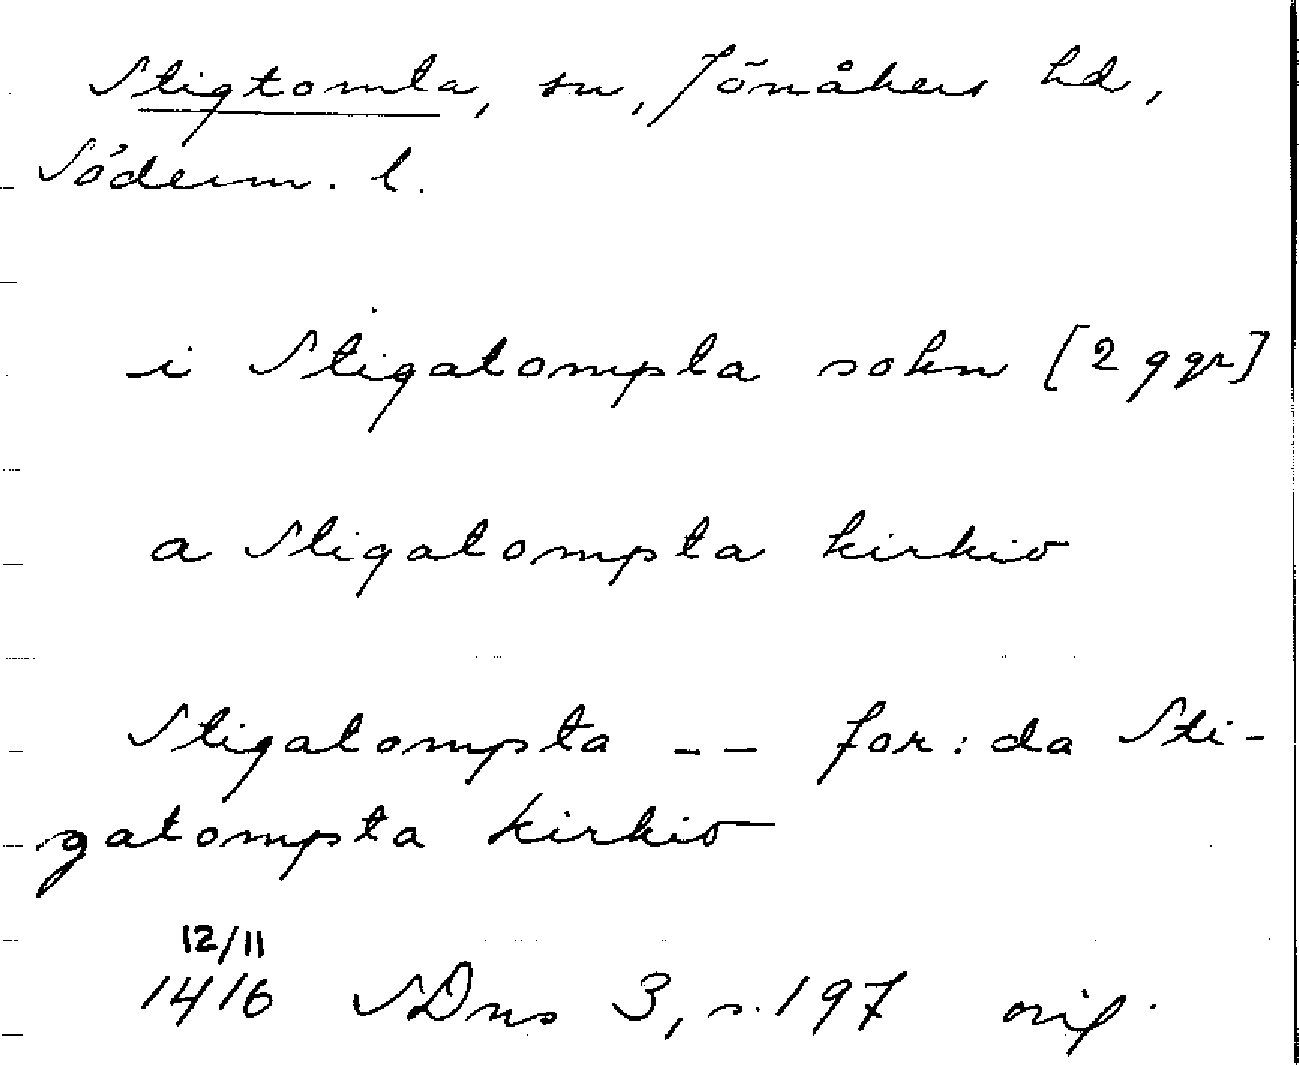 Stigtomta, sn, Jönåkers hd,
Söderm. l.
i Stigatompta sokn [2 ggr]
a Stigatompta kirkio
Stigatompta -- for:da Sti-
gatompta kirkio
12/11
1416 SDns 3, s. 197 orig.